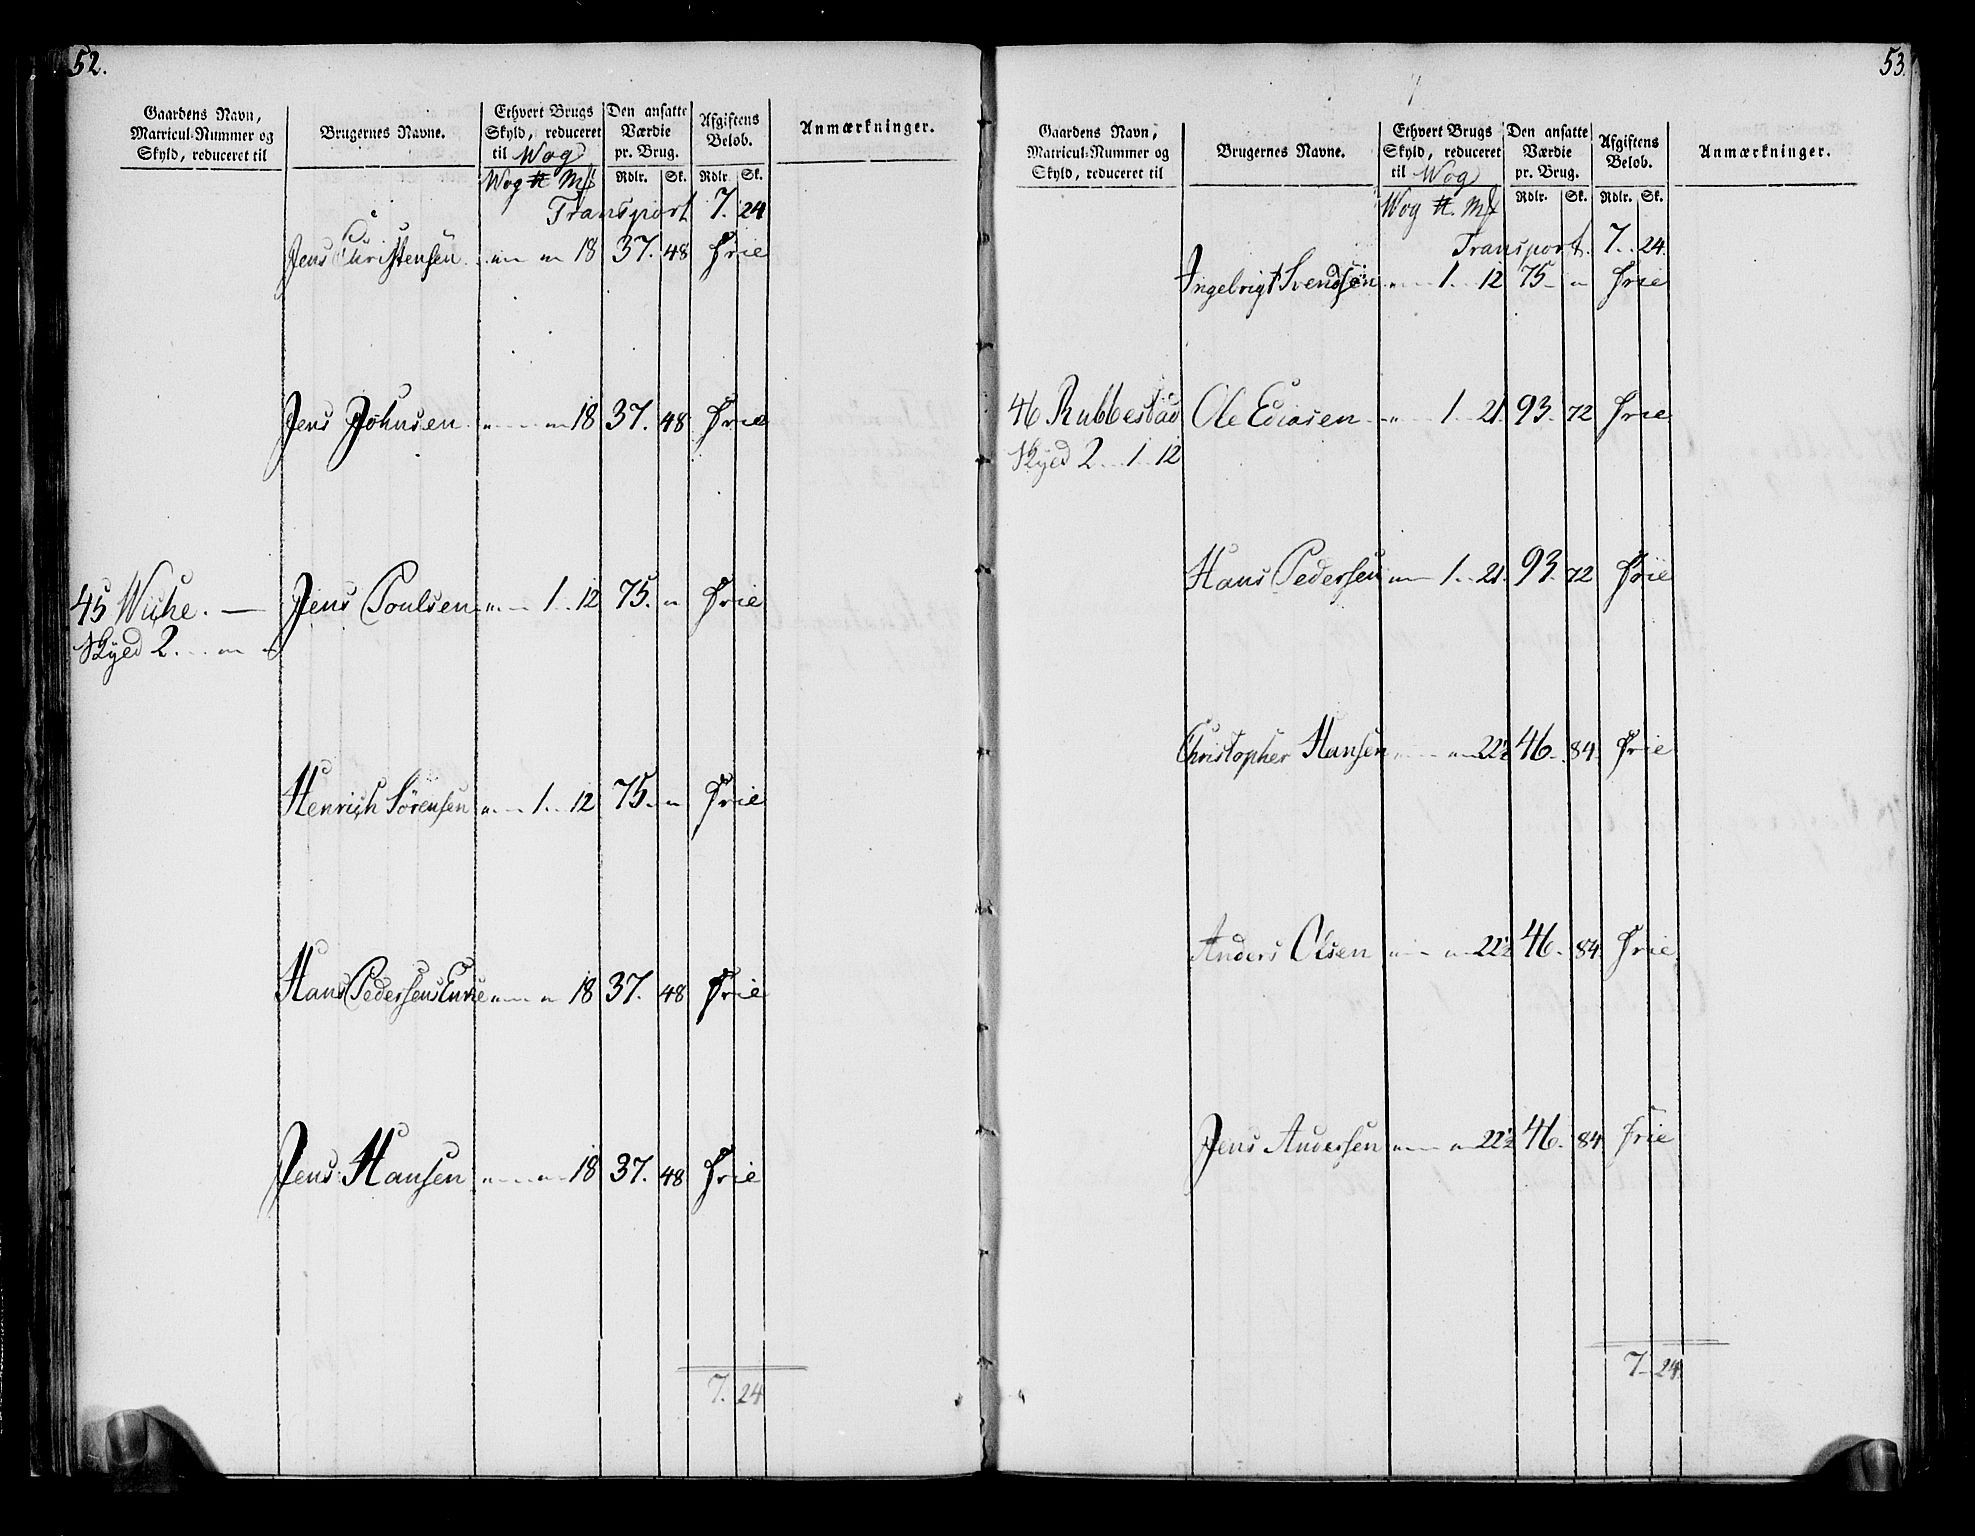 52.
Gaardens Navn,
Matricul-Nummer og
Skyld, reduceret til
Brugernes Navne.
Ethvert Brugs
Skyld, reduceret
til Wog
Den ansatte
Værdie
pr. Brug.
Afgiftens
Beløb.
Anmærkninger.
Wog ℔ Mß
Rdlr. Sk. Rdlr. Sk.
Transport 7. 24
Jens Christensen „ „ 18 37. 48 Frie
Jens Johnsen „ „ 18 37. 48 Frie
45 Wiche. — Jens Poulsen „ 1. 12 75. „ Frie
Skyld 2. „ „
Henrich Sörensen „ 1. 12 75. „ Frie
Hans Pedersens Enke „ „ 18 37. 48 Frie
Jens Hansen „ „ 18 37. 48 Frie
7. 24
53.
Gaardens Navn,
Matricul-Nummer og
Skyld, reduceret til
Brugernes Navne.
Ethvert Brugs
Skyld, reduceret
til Wog
Den ansatte
Værdie
pr. Brug.
Afgiftens
Beløb.
Anmærkninger.
Wog ℔. Mß
Rdlr. Sk. Rdlr. Sk.
Transport. 7. 24.
Ingebrigt Svendsen „ 1. 12 75. „ Frie
46 Rubbestad Ole Ediasen „ 1. 21. 93. 72 Frie
Skyld 2. 1. 12
Hans Pedersen „ 1. 21. 93. 72 Frie
Christopher Hansen „ „ 22½ 46. 84. Frie
Anders Olsen „ „ 22½ 46. 84. Frie
Jens Andersen „ „ 22½ 46. 84 Frie
7. 24.